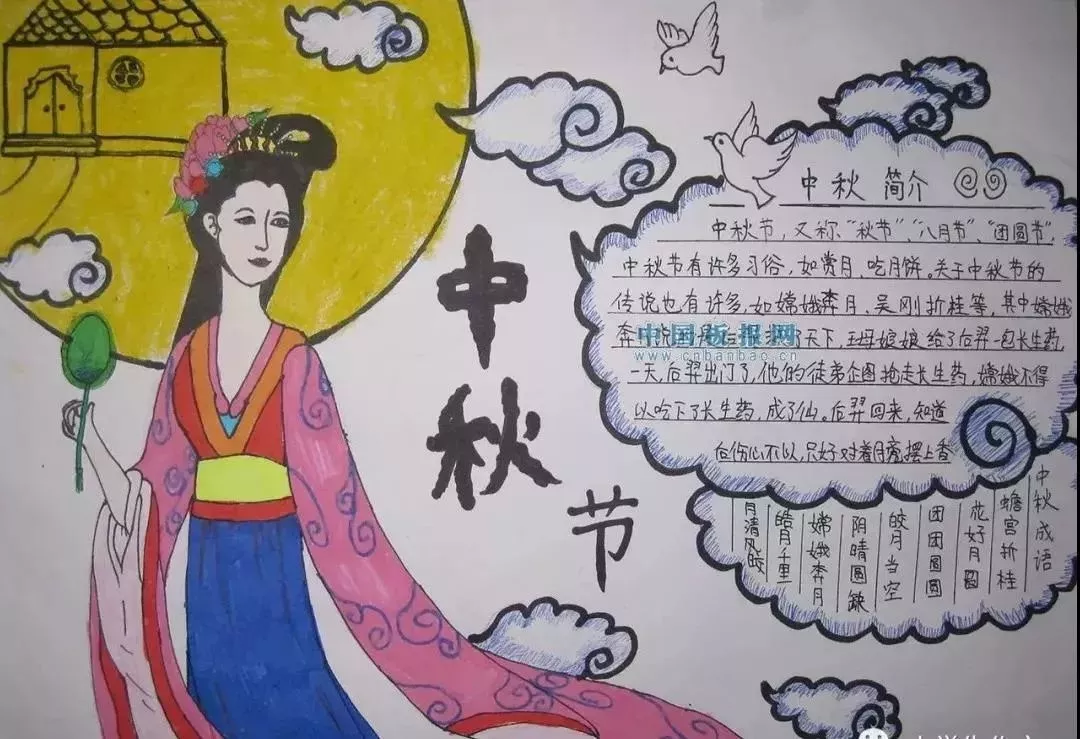 中秋节
中秋简介
中秋节，又称“秋节”、“八月节”、“团圆节”，
中秋节有许多习俗，如赏月、吃月饼。关于中秋节的
传说也有许多，如嫦娥奔月、吴刚折桂等，其中嫦娥
奔 了天下，王母娘娘给了后羿一包长生药
一天，后羿出门了，他的徒弟企图抢走长生药，嫦娥不得
以吃下了长生药，成了仙。后羿回来，知道
后伤心不以，只好对着月亮摆上香
中国板报网
www.cnbanbao.cn
中秋成语
蟾宫折桂
花好月圆
团团圆圆
皎月当空
阴晴圆缺
嫦娥奔月
皓月千里
月清风皎